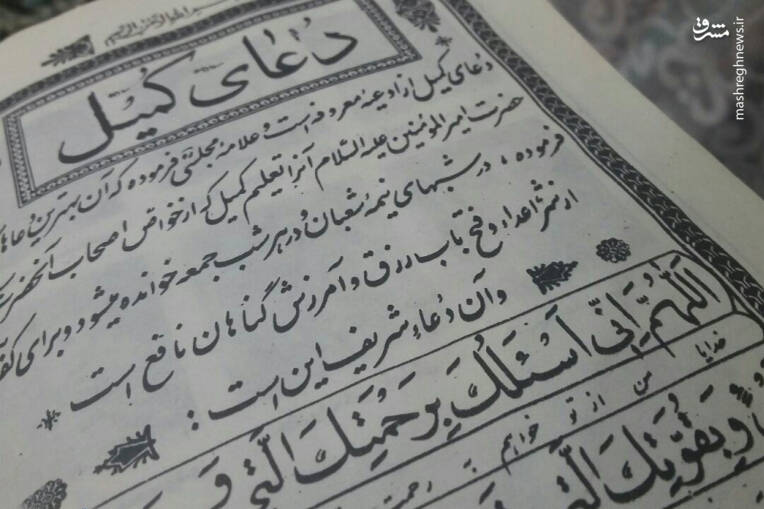 مشرق
mashreghnews.ir
بسم الله الرحمن الرحیم
دعای کمیل
دعای کمیل از ادعیه معروفه است و علامه مجلسی فرموده که آن بهترین دعاها
حضرت امیرالمؤمنین علیه السلام آنرا تعلیم کمیل که از خواص اصحاب آنحضرت
فرموده، در شبهای نیمه شعبان و در هر شب جمعه خوانده میشود و برای
از شر اعداء و فتح باب رزق و آمرزش گناهان نافع است
و آن دعاء شریف این است :
اَللّهُمَّ اِنّی اَسْئَلُكَ بِرَحْمَتِكَ الَّتی وَ
خدایا من از تو خواهم به رحمت
وَبِقُوَّتِكَ الَّتی